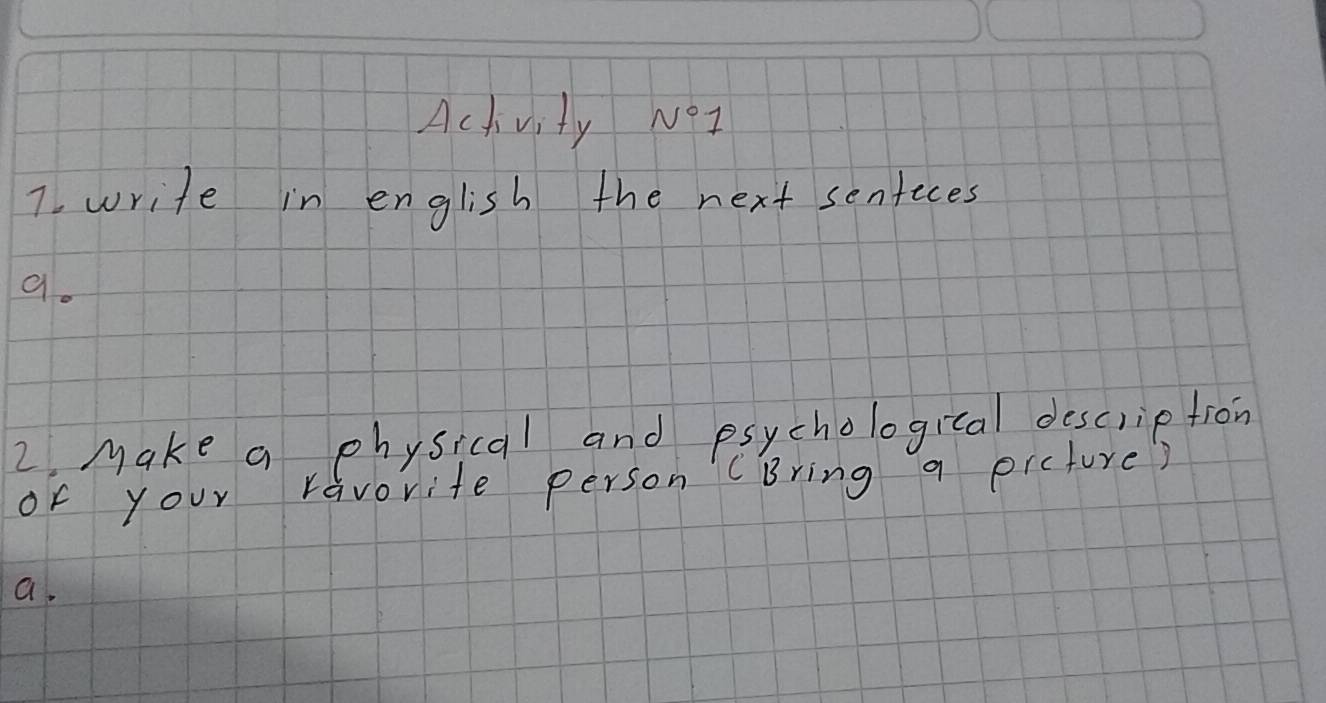 Activity N°1
1. write in english the next senteces
a.
2. Make a physical and psychological description
of your favorite person (Bring a picture)
a.